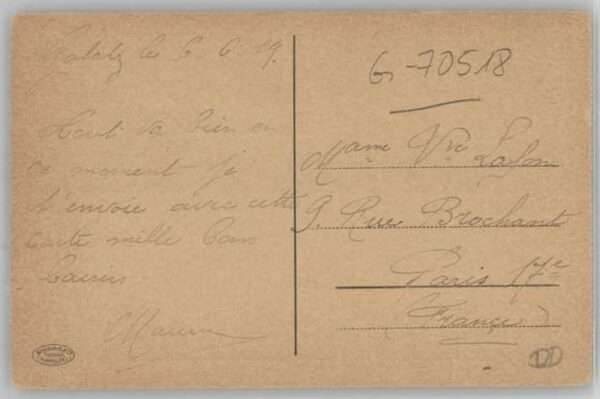 Galatz le 6 6 19.
Tout va bien en
ce moment je
t'envoie avec cette
carte mille bons
baisers
G-70518
Mame Vve Lalon
9. Rue Brochant
Paris 17e
(France)